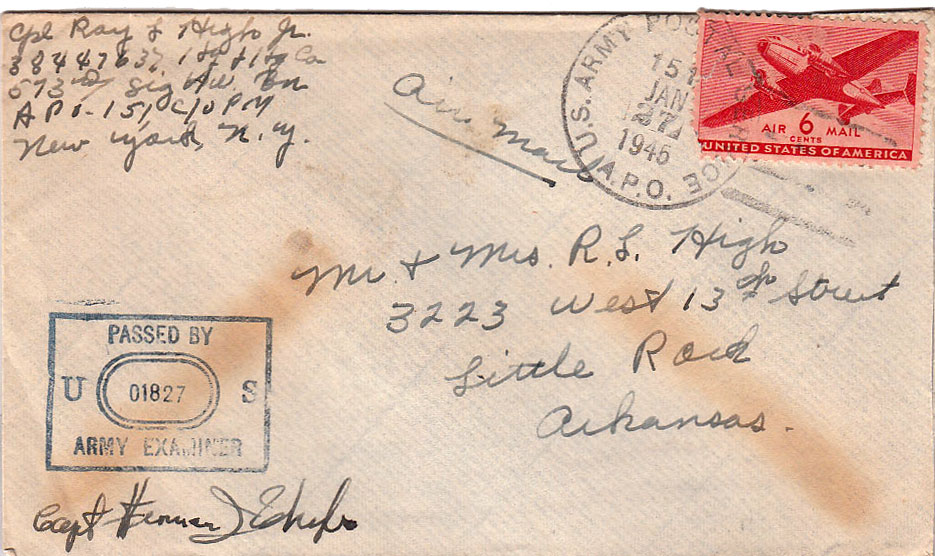 Cpl Ray L High Jr.
38447637, 1st Hq Co
573rd Sig A.W. Bn
A.P.O. 151, C/O P M
New York, N.Y.
Air Mail
U.S. ARMY POSTAL SERVICE
JAN
27
1945
A.P.O.
AIR 6 MAIL
CENTS
UNITED STATES OF AMERICA
Mr. + Mrs. R. L. High
3223 West 13th Street
Little Rock
Arkansas.
PASSED BY
U 01827 S
ARMY EXAMINER
Capt Herman J